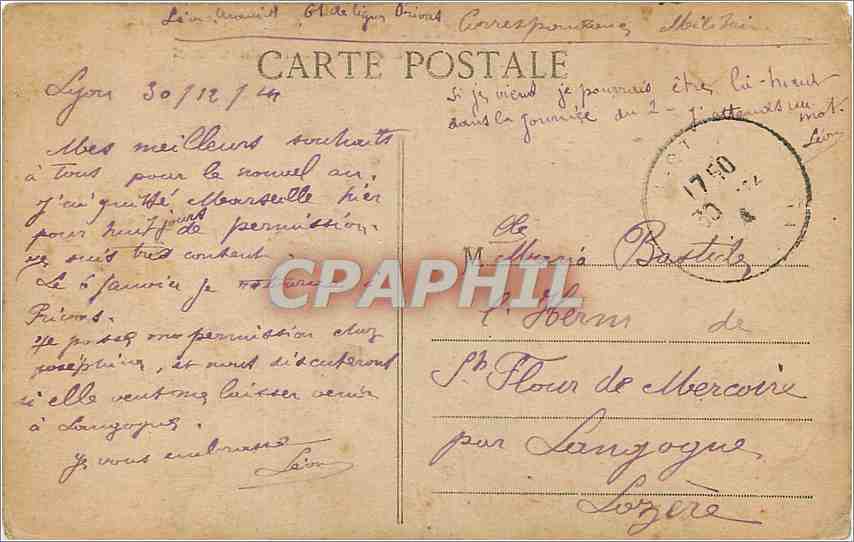 61 de ligne Privas Correspondance Militaire
CARTE POSTALE
Lyon 30/12/14
Si je viens je pourrais être là-haut
dans la journée du 2 - j'attends un
mot.
Léon
Mes meilleurs souhaits
à tous pour le nouvel an.
J'ai quitté Marseille hier
pour huit jours de permission.
Je suis très content.
Le 6 Janvier je à
Privas.
Je passe ma permission chez
Joséphine, et nous discuterons
si elle veut me laisser venir
à Langogne.
Je vous embrasse
Léon
17 50
30
M
Bastide
l'Herm de
St Flour de Mercoire
par Langogne
Lozère
CPAPHIL